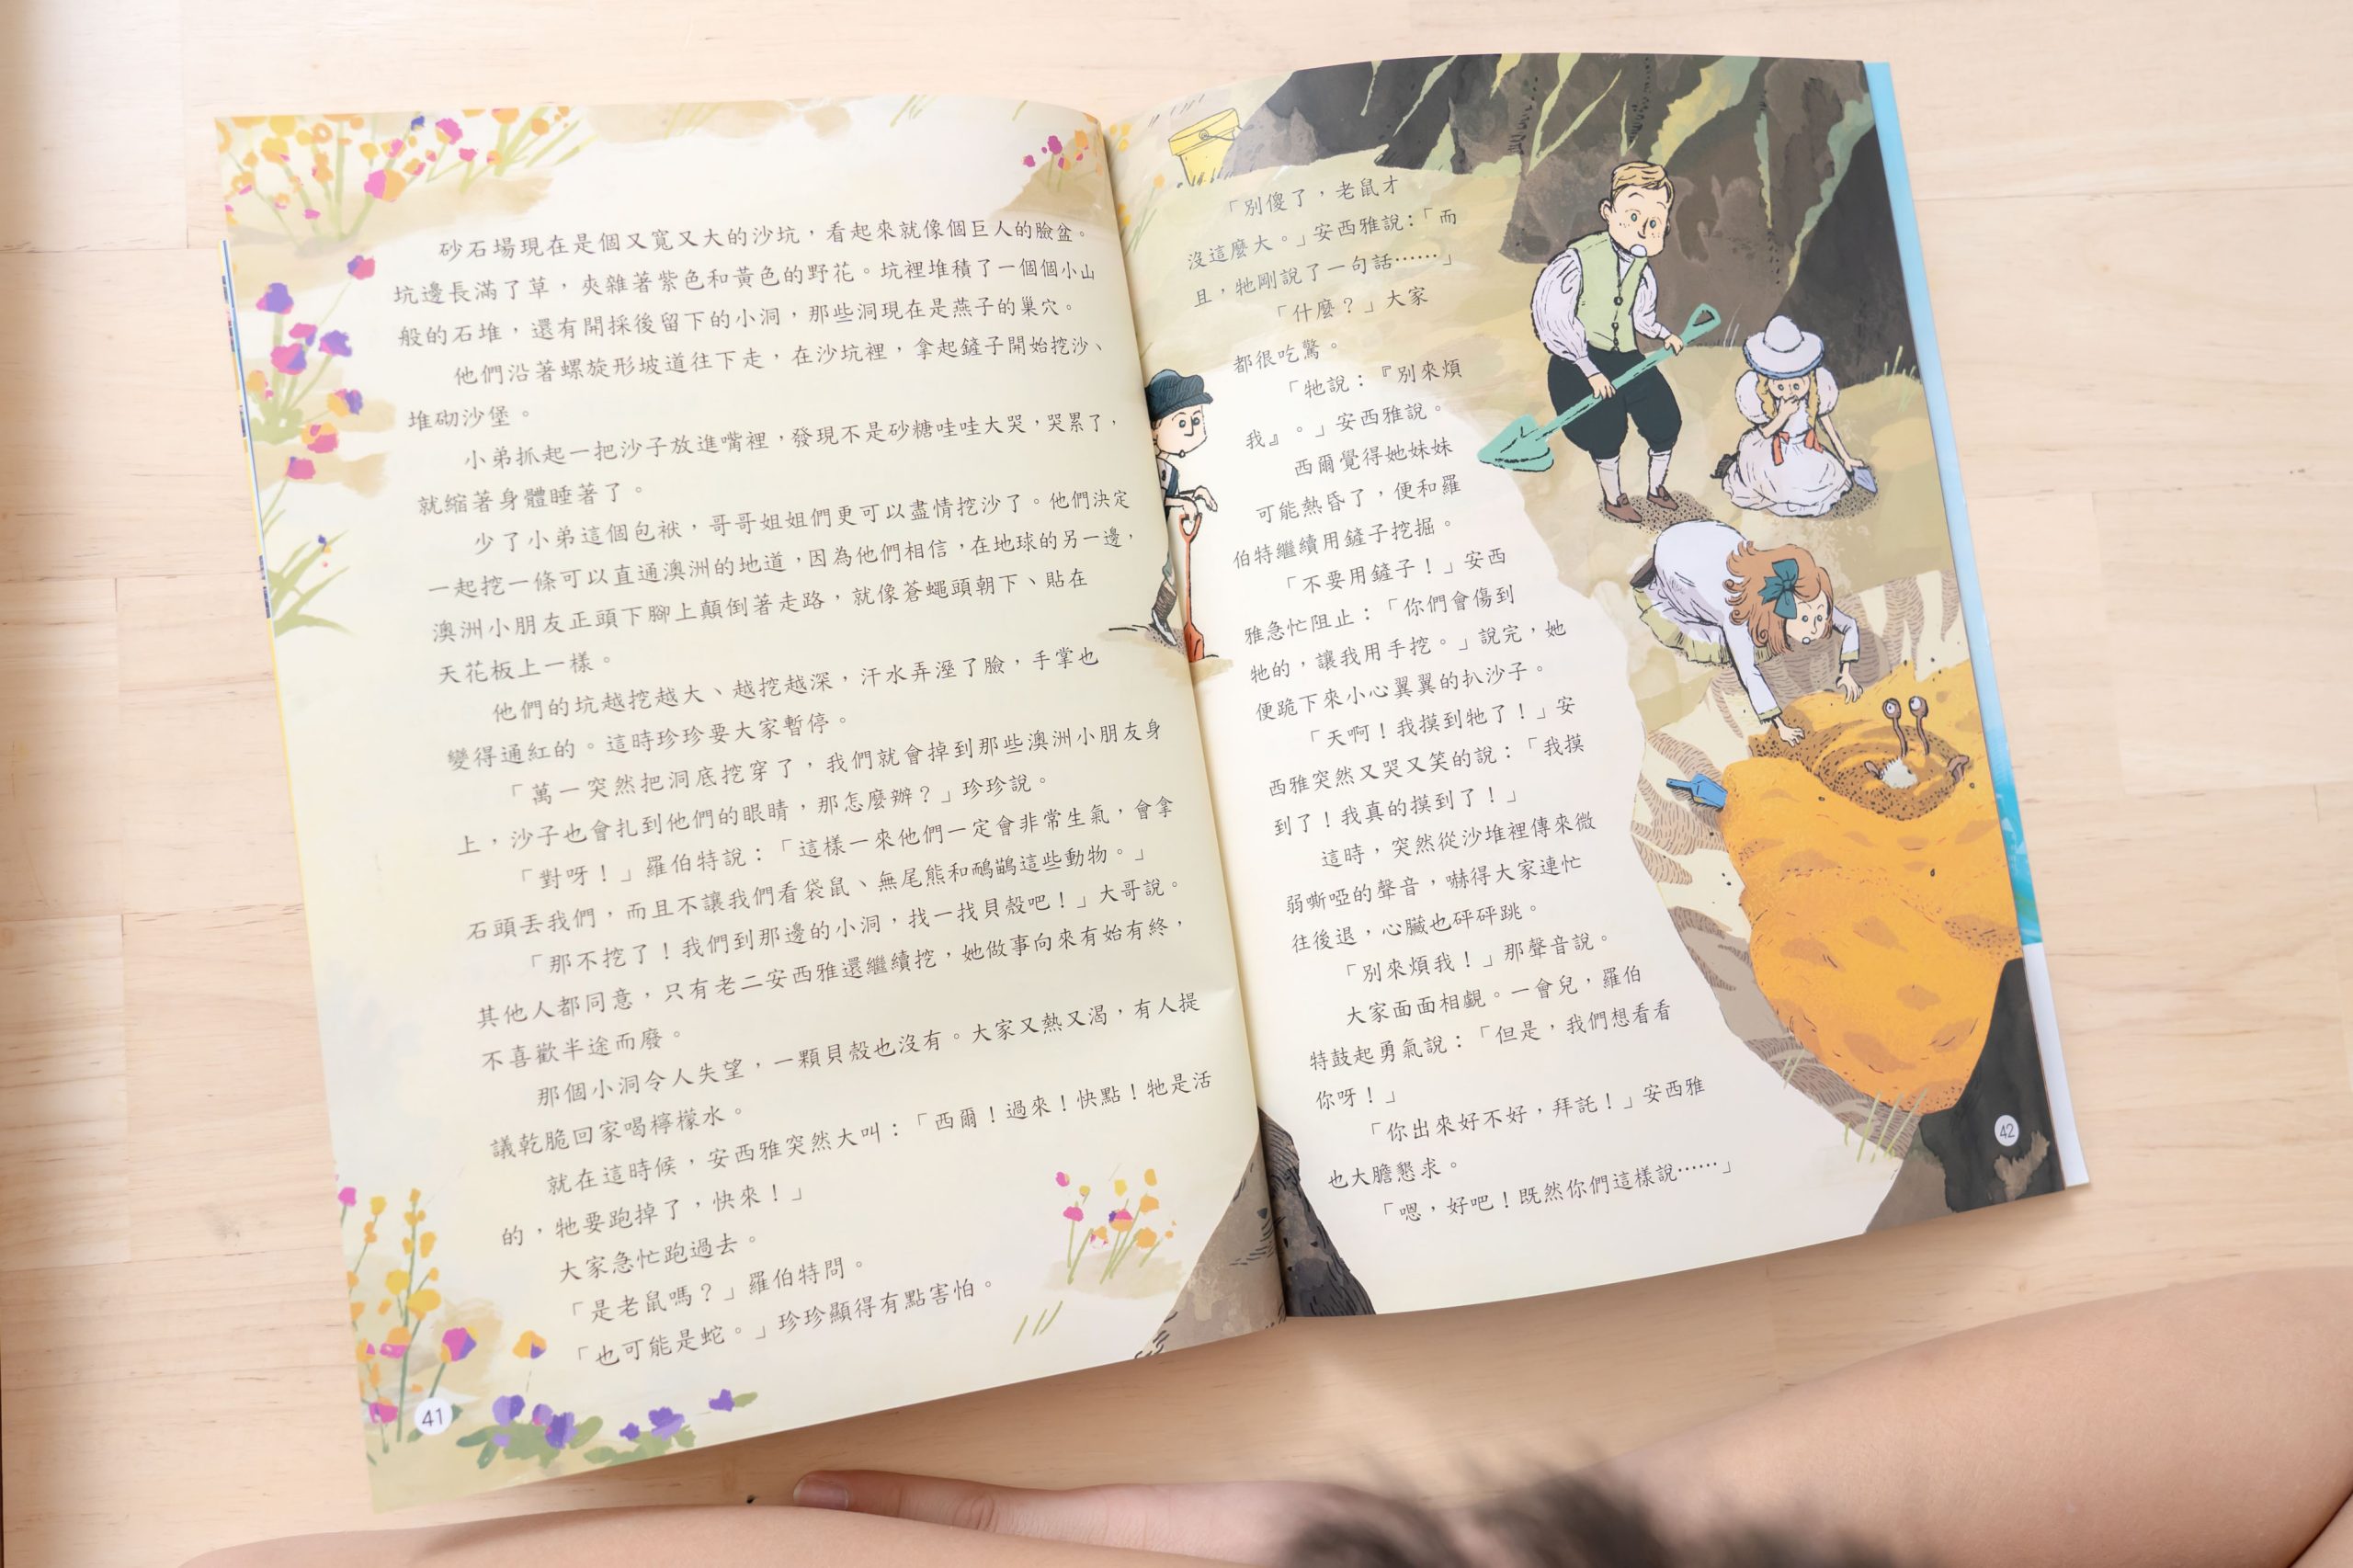 砂石場現在是個又寬又大的沙坑，看起來就像個巨人的臉盆。
坑邊長滿了草，夾雜著紫色和黃色的野花。坑裡堆積了一個個小山
般的石堆，還有開採後留下的小洞，那些洞現在是燕子的巢穴。
他們沿著螺旋形坡道往下走，在沙坑裡，拿起鏟子開始挖沙、
堆砌沙堡。
小弟抓起一把沙子放進嘴裡，發現不是砂糖哇哇大哭，哭累了，
就縮著身體睡著了。
少了小弟這個包袱，哥哥姐姐們更可以盡情挖沙了。他們決定
一起挖一條可以直通澳洲的地道，因為他們相信，在地球的另一邊，
澳洲小朋友正頭下腳上顛倒著走路，就像蒼蠅頭朝下、貼在
天花板上一樣。
他們的坑越挖越大、越挖越深，汗水弄溼了臉，手掌也
變得通紅的。這時珍珍要大家暫停。
「萬一突然把洞底挖穿了，我們就會掉到那些澳洲小朋友身
上，沙子也會扎到他們的眼睛，那怎麼辦？」珍珍說。
「對呀！」羅伯特說：「這樣一來他們一定會非常生氣，會拿
石頭丟我們，而且不讓我們看袋鼠、無尾熊和鴯鶓這些動物。」
「那不挖了！我們到那邊的小洞，找一找貝殼吧！」大哥說。
其他人都同意，只有老二安西雅還繼續挖，她做事向來有始有終，
不喜歡半途而廢。
那個小洞令人失望，一顆貝殼也沒有。大家又熱又渴，有人提
議乾脆回家喝檸檬水。
就在這時候，安西雅突然大叫：「西爾！過來！快點！牠是活
的，牠要跑掉了，快來！」
大家急忙跑過去。
「是老鼠嗎？」羅伯特問。
「也可能是蛇。」珍珍顯得有點害怕。
41
「別傻了，老鼠才
沒這麼大。」安西雅說：「而
且，牠剛說了一句話……」
「什麼？」大家
都很吃驚。
「牠說：『別來煩
我』。」安西雅說。
西爾覺得她妹妹
可能熱昏了，便和羅
伯特繼續用鏟子挖掘。
「不要用鏟子！」安西
雅急忙阻止：「你們會傷到
牠的，讓我用手挖。」說完，她
便跪下來小心翼翼的扒沙子。
「天啊！我摸到牠了！」安
西雅突然又哭又笑的說：「我摸
到了！我真的摸到了！」
這時，突然從沙堆裡傳來微
弱嘶啞的聲音，嚇得大家連忙
往後退，心臟也砰砰跳。
「別來煩我！」那聲音說。
大家面面相覷。一會兒，羅伯
特鼓起勇氣說：「但是，我們想看看
你呀！」
「你出來好不好，拜託！」安西雅
也大膽懇求。
「嗯，好吧！既然你們這樣說……」
42